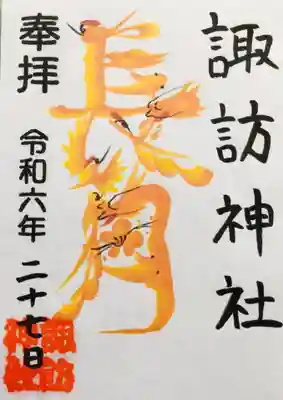 諏訪神社
長月
奉拝
令和六年 二十七日
諏訪神社